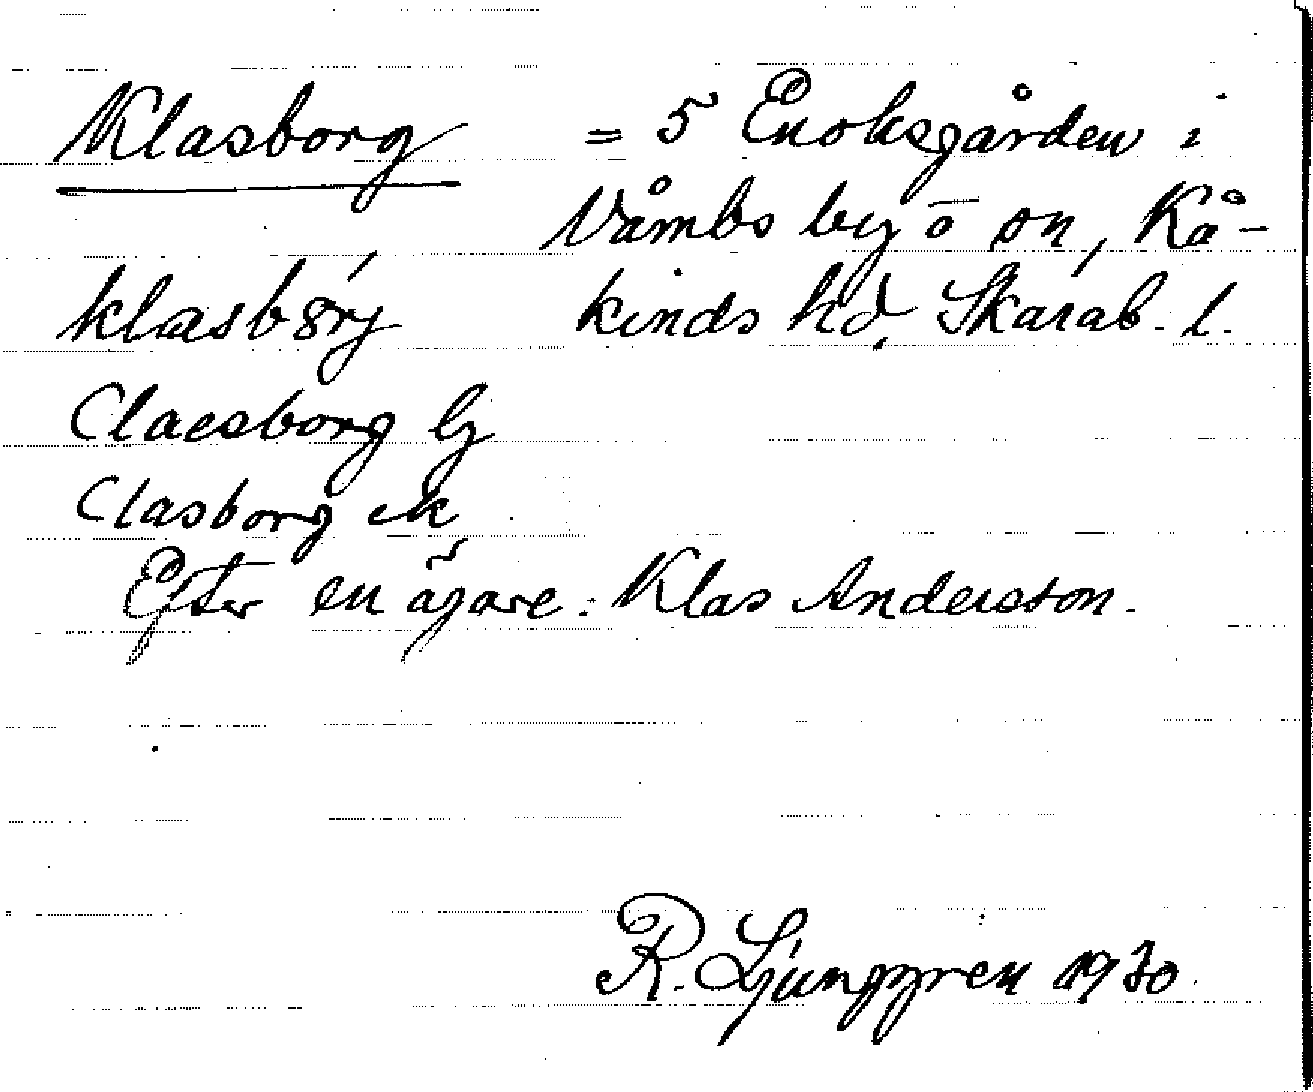 Klasborg = 5 Enoksgården i
Våmbs by o̅ sn, Kå-
klasbórj kinds hd, Skarab. l.
Claesborg Gj
Clasborg ek
Efter en ägare: Klas Andersson.
R. Ljunggren 1930